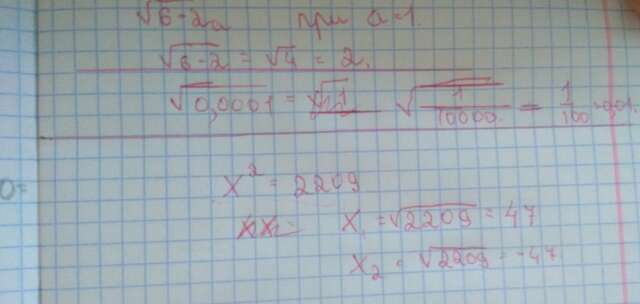 √6-2a при a=1.
√6-2 = √4 = 2.
√0,0001 = √1/10000 = 1/100 = 0,01
x² = 2209
x₁ = √2209 = 47
x₂ = √2209 = -47